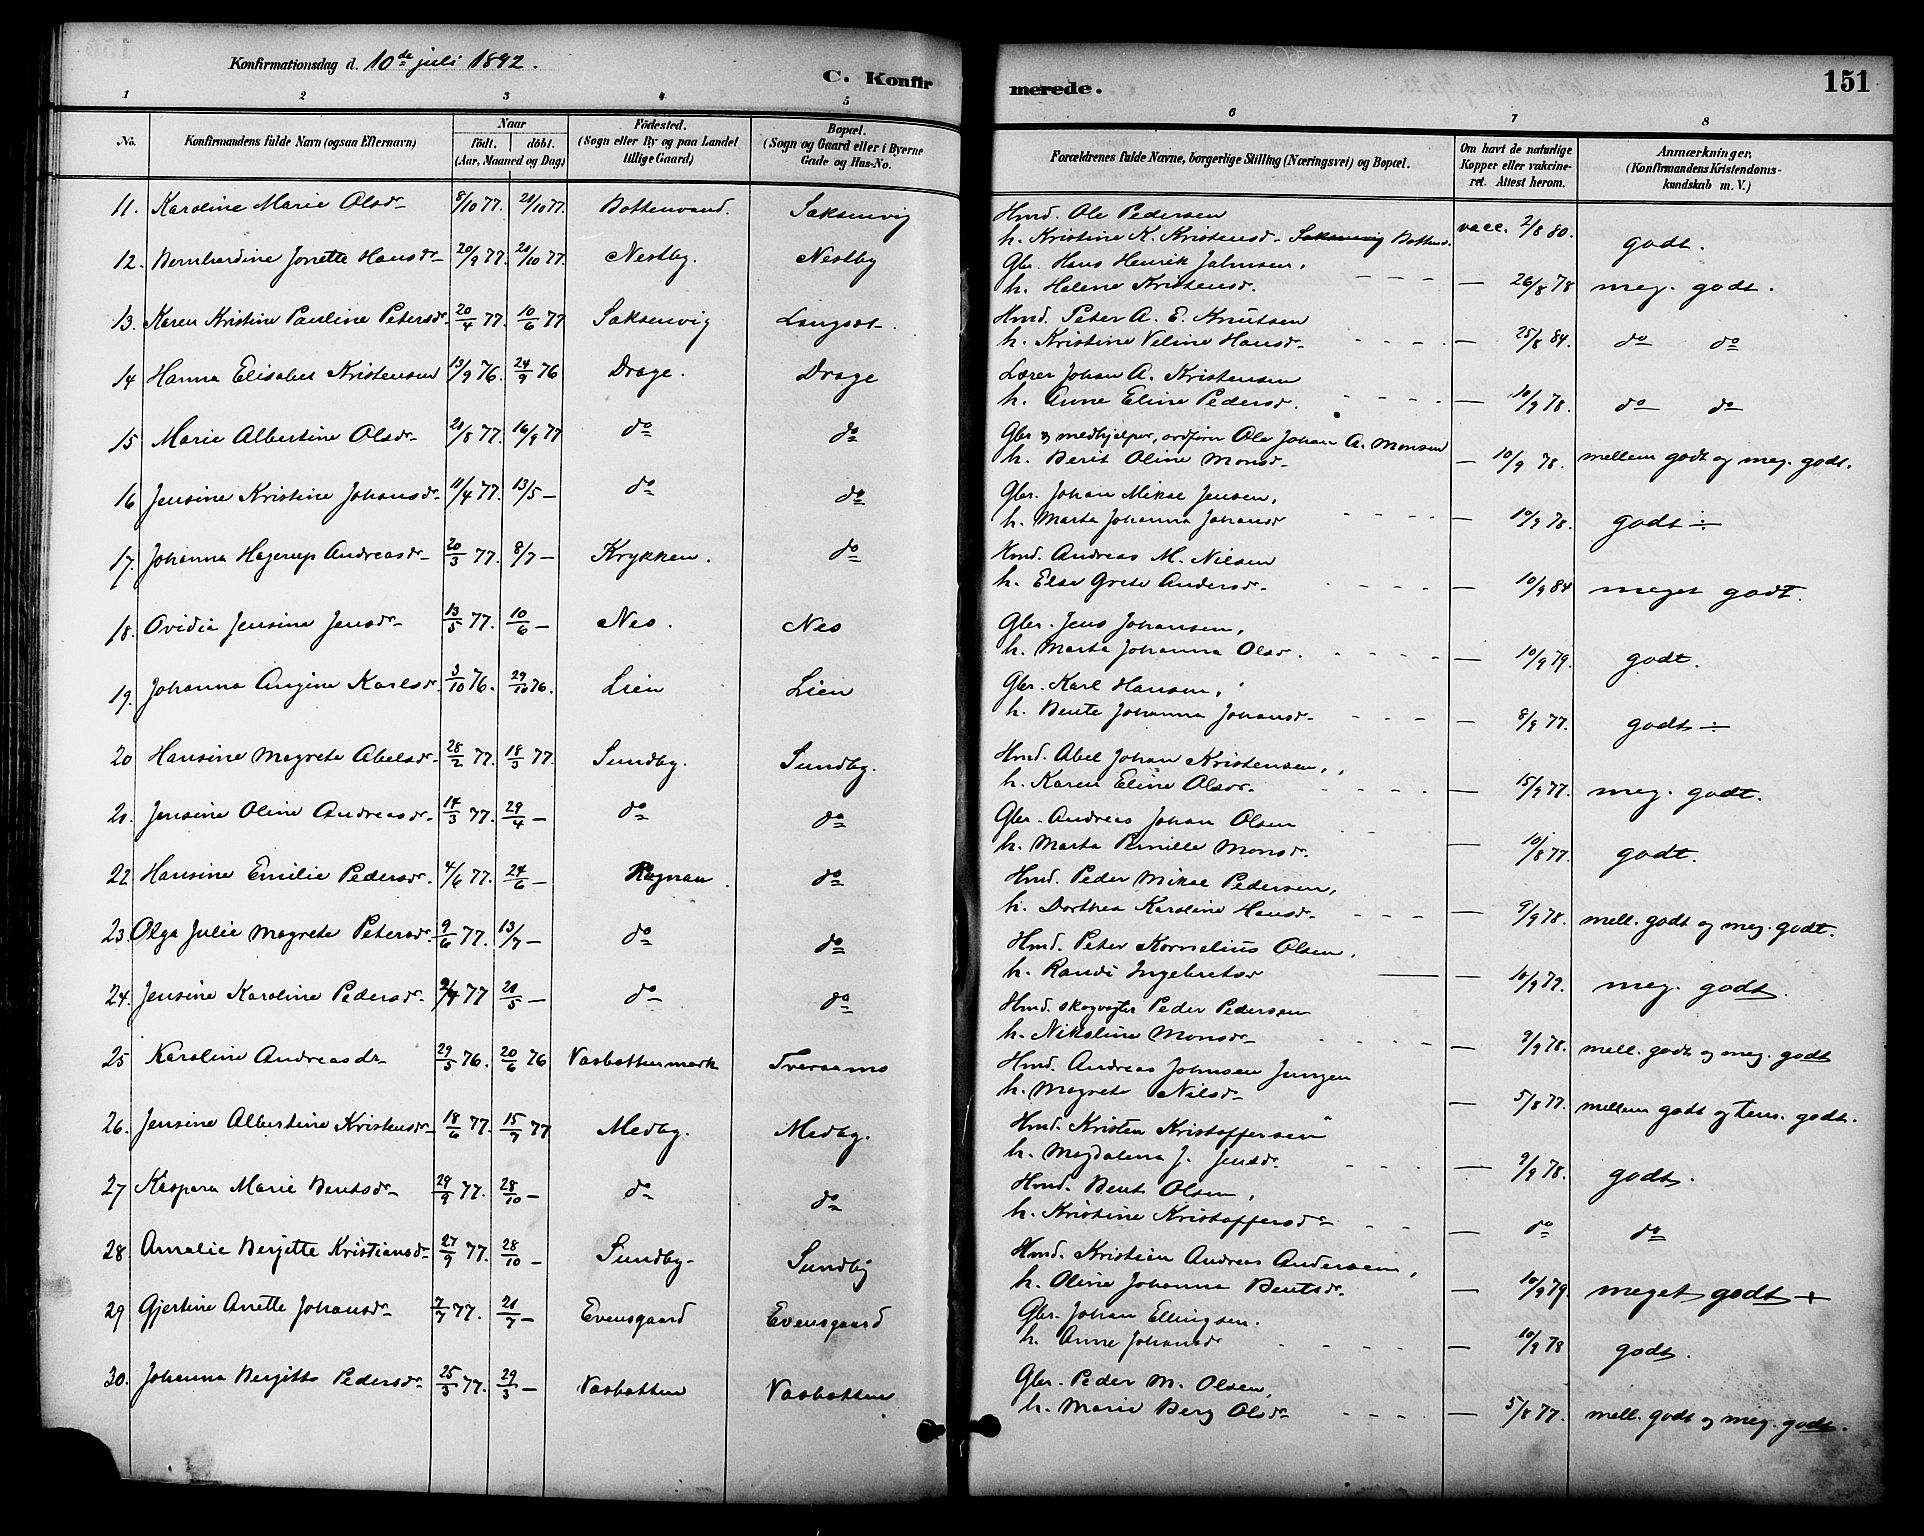 Konfirmationsdag d. 10de juli 1892.
C. Konfirmerede. 151
1 2 3 4 5 6 7 8
No. Konfirmandens fulde Navn (ogsaa Efternavn) Naar födt. döbt. (Aar, Maaned og Dag) Födested. (Sogn eller By og paa Landet tillige Gaard) Bopæl. (Sogn og Gaard eller i Byerne Gade og Hus-No. Forældrenes fulde Navne, borgerlige Stilling (Næringsvei) og Bopæl. Om havt de naturlige Kopper eller vakcineret. Attest herom. Anmærkninger. (Konfirmandens Kristendomskundskab m. V.)
11. Karoline Marie Olsdr 8/10 77. 21/10 77. Bottenvand. Saksenvig Hmd. Ole Pedersen
h. Kristine K. Kristensdr Saksenvig Bottenv. vacc. 2/8 80. godt.
12. Bernhardine Jonette Hansdr 20/9 77. 21/10 77. Nestby. Nestby Gbr. Hans Henrik Jalmsen,
h. Helene Kristensdr. — 26/8 78 meg. godt.
13. Karen Kristine Pauline Petersdr. 20/4 77. 10/6 77 Saksenvig Langset. Hmd. Peter A. E. Knutsen
h. Kristine Veline Hansdr — 25/8 84. do do
14 Hanna Elisabet Kristensen 13/9 76. 24/9 76 Drage. Drage Lærer Johan A. Kristensen
h. Anne Eline Pedersd. — 10/9 78. do do
15 Marie Albertine Olsdr 21/8 77. 16/9 77 do do Gbr. og medhjelper, ordfører Ole Johan A. Monsen
h. Berit Oline Monsdr — 10/9 78. mellem godt og meg. godt.
16 Jensine Kristine Johansdr 11/4 77. 13/5 — do do Gbr. Johan Mikal Jensen,
h. Marta Johanna Johansdr — 10/9 78. godt ÷
17. Johanna Hagerup Andreasdr 20/3 77. 8/7 — Krykken. do Hmd. Andreas M. Nilsen
h. Else Grete Andersdr — 10/9 84 meget godt.
18. Ovidia Jensine Jensdr 13/5 77. 10/6 — Nes. Nes Gbr. Jens Johansen,
h. Marta Johanna Olsdr. — 10/9 79. godt.
19. Johanna Angine Karlsdr. 3/10 76. 29/10 76. Lien Lien Gbr. Karl Hansen,
h. Bente Johanna Johansdr — 8/9 77. godt ÷
20 Hansine Magrete Abelsdr 28/2 77. 18/3 77. Sundby. Sundby. Hmd. Abel Johan Kristensen,
h. Karen Eline Olsdr. — 15/9 77. meg. godt.
21. Jensine Oline Andreasdr 17/3 77. 29/4 — do do Gbr. Andreas Johan Olsen
h. Marta Pernille Monsdr. — 10/8 77. godt.
22 Hansine Emilie Pedersdr. 4/6 77. 24/6 — Rognan. do Hmd. Peder Mikal Pedersen,
h. Dorthea Karoline Hansdr — 9/9 78. mell. godt og meg. godt.
23. Olga Julie Magrete Petersdr. 9/6 77. 13/7 — do do Hmd. Peter Kornelius Olsen,
h. Randi Ingebretsdr — 10/9 79. meg. godt.
24. Jensine Karoline Pedersdr 77 21/5 — do do Hmd. skogvogter Peder Pedersen
h. Nikoline Monsdr — 9/9 78. mell. godt og meg. godt
25 Karoline Andreasdr 29/5 76. 20/6 76 Vasbottenmark Tveraamo Hmd. Andreas Johnsen Jungen
h. Magrete Nilsdr — 5/8 77. mellem godt og tem. godt.
26. Jensine Albertine Kristensdr 18/6 77. 15/7 77 Medby. Medby. Hmd. Kristen Kristoffersen
h. Magdalena J. Jensdr. — 9/9 78. godt.
27 Kaspara Marie Bentsdr 29/9 77. 28/10 — do do Hmd. Bent Olsen,
h. Kristine Kristoffersdr — do do
28 Amalie Bergitte Kristiansdr 27/9 77. 28/10 — Sundby. Sundby Hmd. Kristian Andreas Andersen,
h. Oline Johanna Bentsdr. — 10/9 79. meget godt +
29 Gjertine Anette Johansdr 7/7 77. 21/7 — Evensgaard Evensgaard Gbr. Johan Ellingsen.
h. Anne Johansdr — 10/9 78 godt.
30. Johanna Bergitte Pedersdr 25/3 77. 29/3 — Vasbotten Vasbotten Gbr. Peder M. Olsen,
h. Marie Berg Olsdr — 5/8 77. mell. godt og meg. godt.